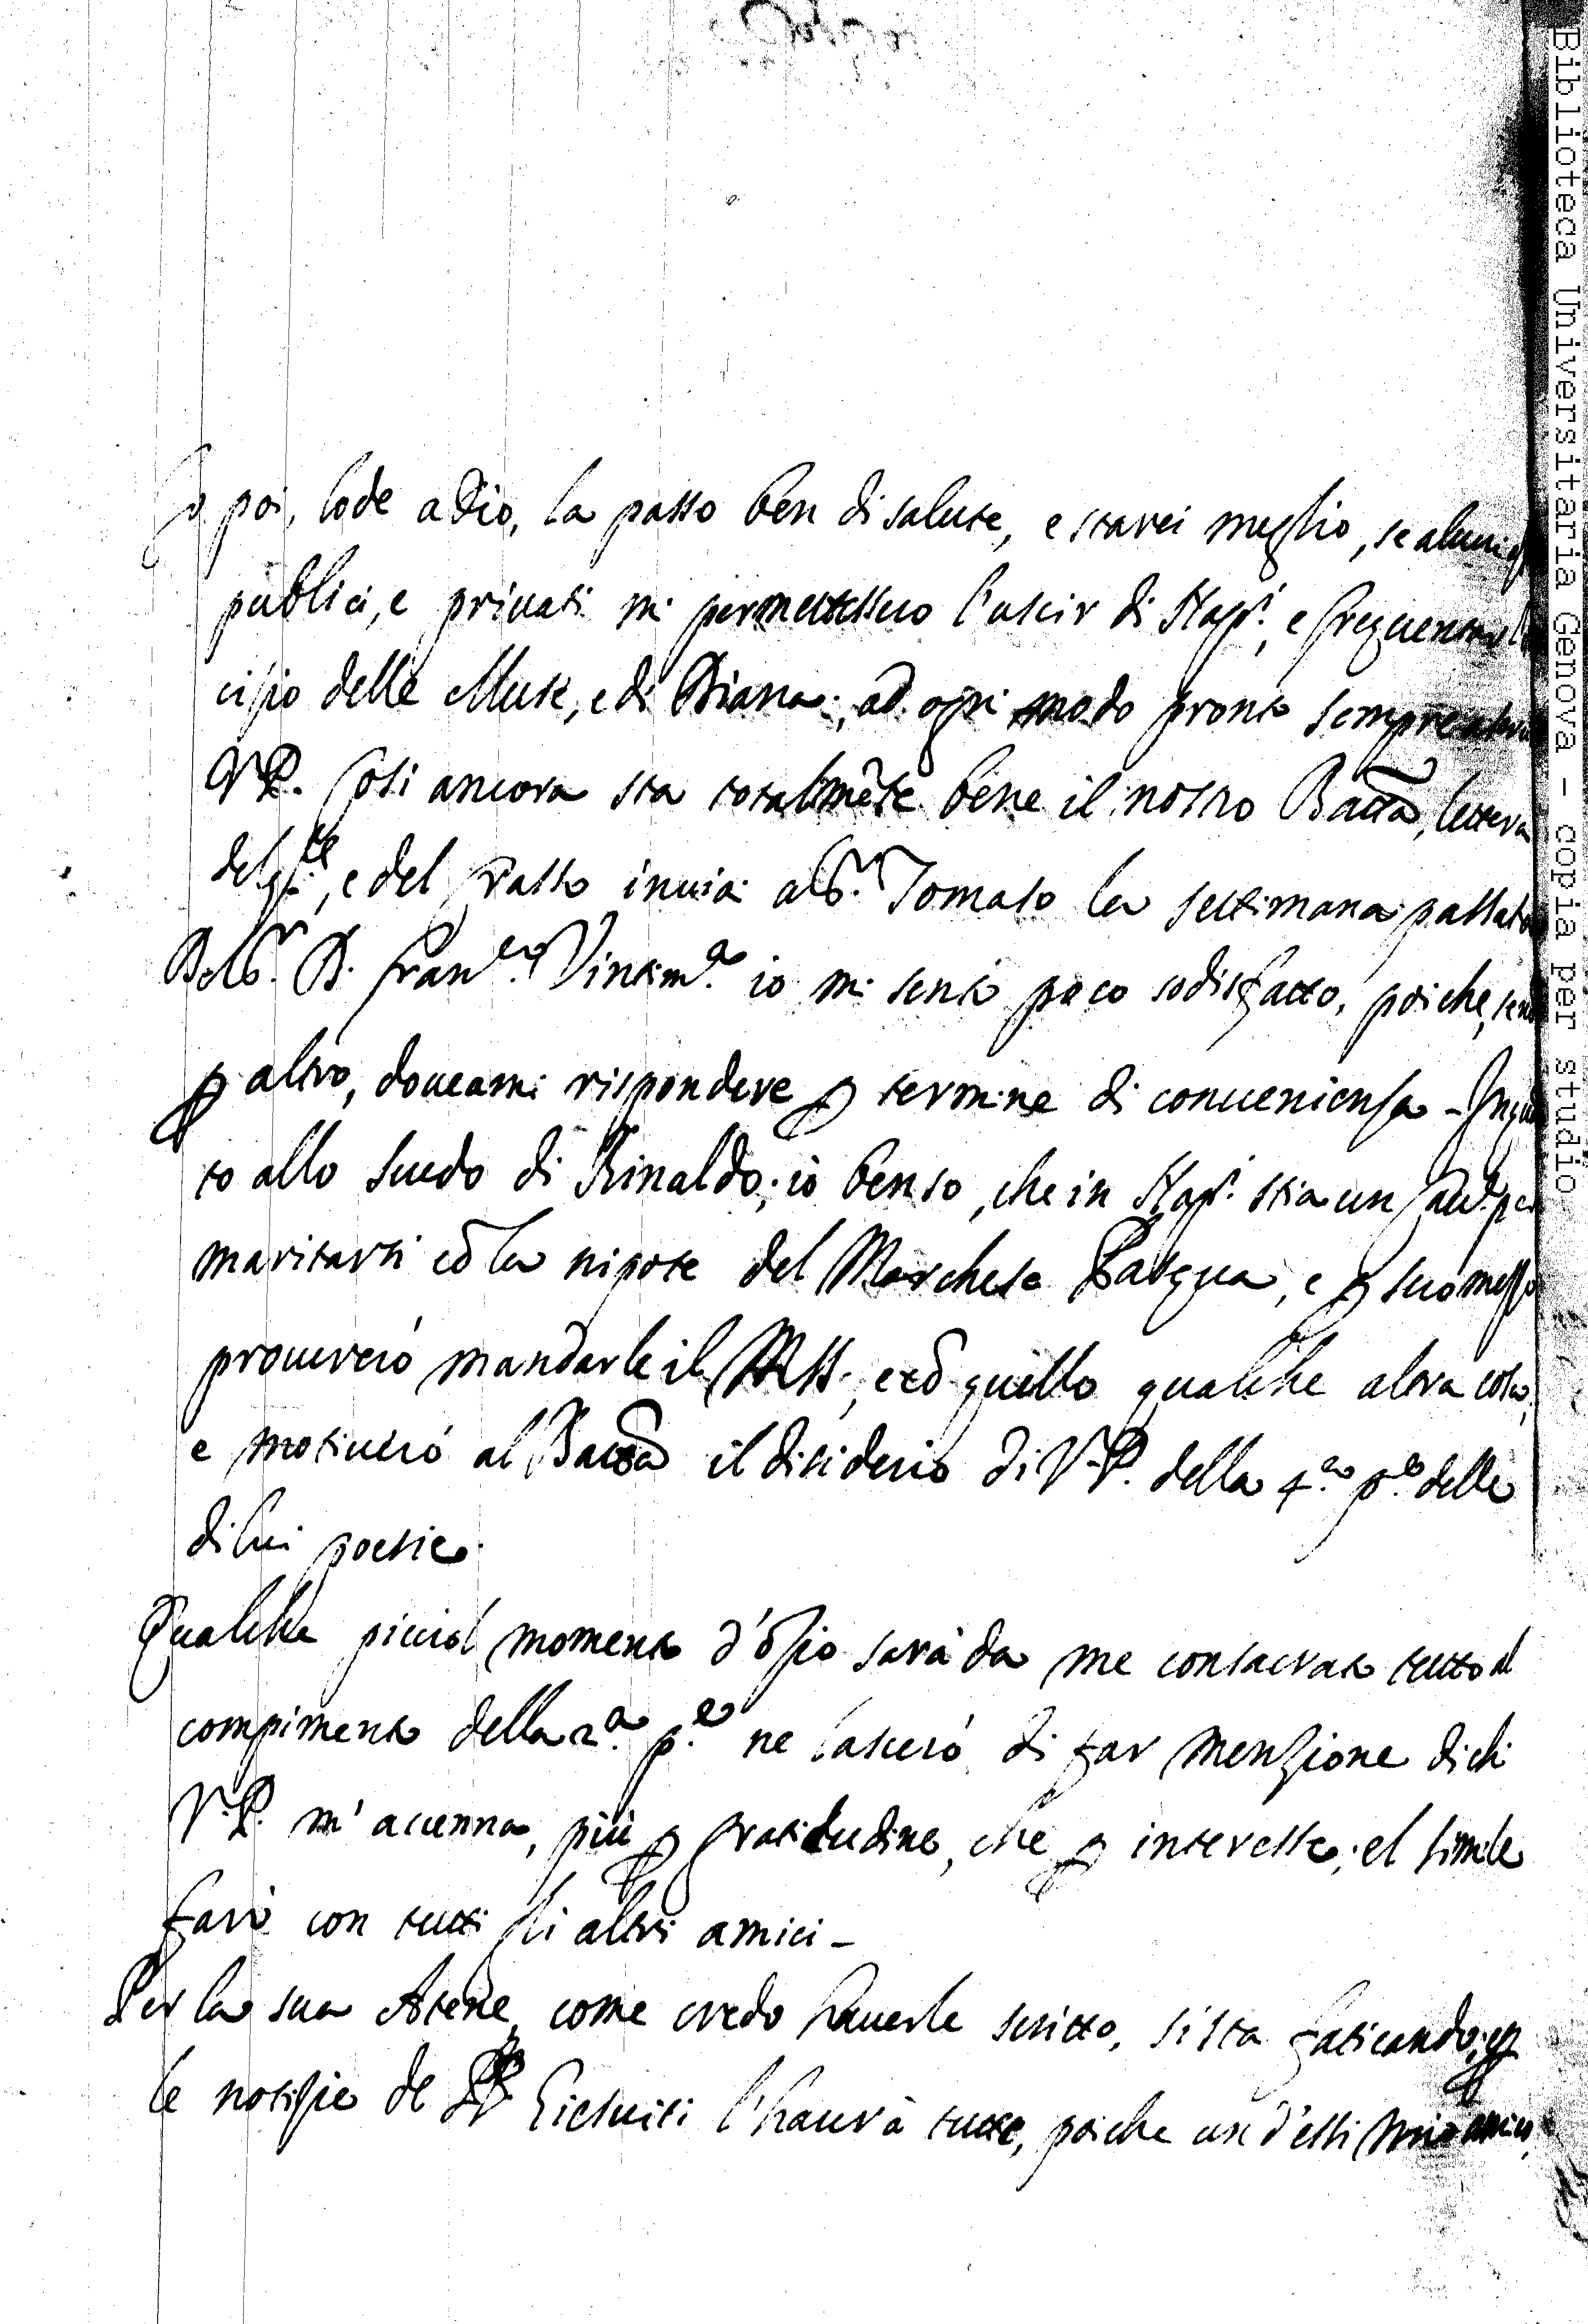 Io poi, lode a Dio, la passo ben di salute, e starei meglio, se alcuni
publici, e privati mi permettessero l'uscir di Nap.i, e frequentar
cipio delle Muse, e di Diana; ad ogni modo pronto sempre
V.P. Così ancora sta totalmẽte bene il nostro Batta, lettera
del q.le, e del Rasso inviai al S.r Tomaso la settimana passata
Del S.r D. Fran.co Vintim.a io mi sento poco sodisfatto, poiche,
ꝑ altro, doveami rispondere ꝑ termine di convenienza -
to allo scudo di Rinaldo; io ben so, che in Nap.i stia un Cav.r per
maritarsi cõ la nipote del Marchese Pasqua, e ꝑ suo mezzo
procurerò mandarle il MSS., e cõ quello qualche altra cosa,
e motiverò al Batta il disiderio di V.P. della 4.a p.e delle
di lui poesie.
Qualche picciol momento d'ozio sarà da me consacrato tutto al
compimento della 2.a p.e ne lascerò di far menzione di chi
V.P. m'accenna, più ꝑ gratitudine, che ꝑ interesse; el simile
farò con tutti gli altri amici -
Per la sua Atene, come credo haverle scritto, si sta faticando, e ꝑ
le notizie de PP. Giesuiti l'haurà tutte, poiche un d'essi mio amico,
Biblioteca Universitaria Genova - copia per studio